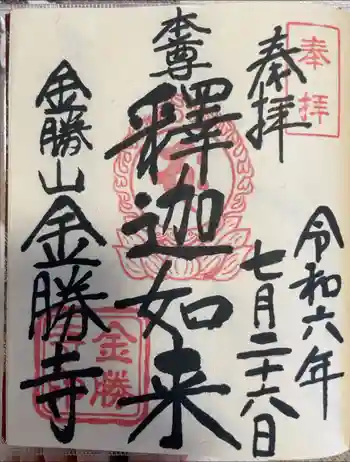 奉拝
奉拝
令和六年
七月二十六日
本尊
釋迦如来
金勝山金勝寺
金勝